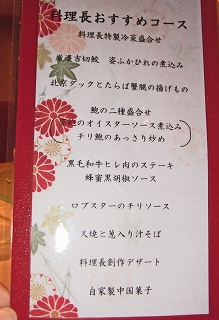 料理長おすすめコース
料理長特製冷菜盛合せ
吉切鮫 姿ふかひれの煮込み
北京ダックとたらば蟹腿の揚げもの
鮑の二種盛合せ
鮑のオイスターソース煮込み
チリ鮑のあっさり炒め
黒毛和牛ヒレ肉のステーキ
蜂蜜黒胡椒ソース
ロブスターのチリソース
叉焼と葱入り汁そば
料理長創作デザート
自家製中国菓子